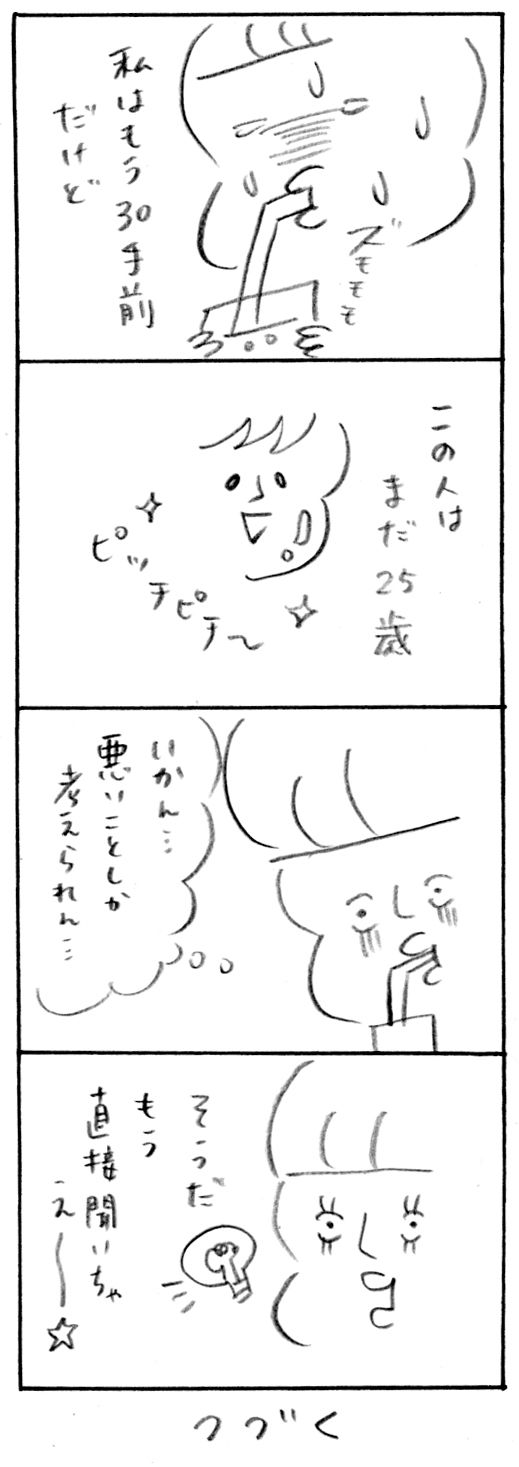 私はもう30手前
だけど
ズモモモ
この人は
まだ25歳
ピッチピチ〜
いかん…
悪いことしか
考えられん…
そうだ
もう
直接聞いちゃ
え―☆
つづく